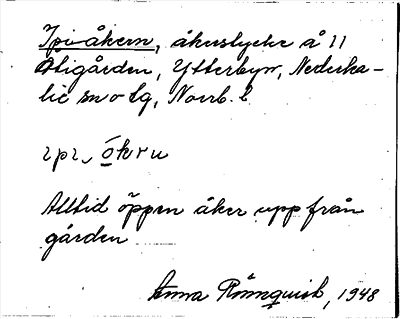 Ipi-åkern, åkerstycke å 11
Otigården, Ytterbyn, Nederka-
lix sn o tg, Norrb. l
ɩpɩ, ókru
Alltid öppen åker upp från
gården
Anna Rönnquist, 1948